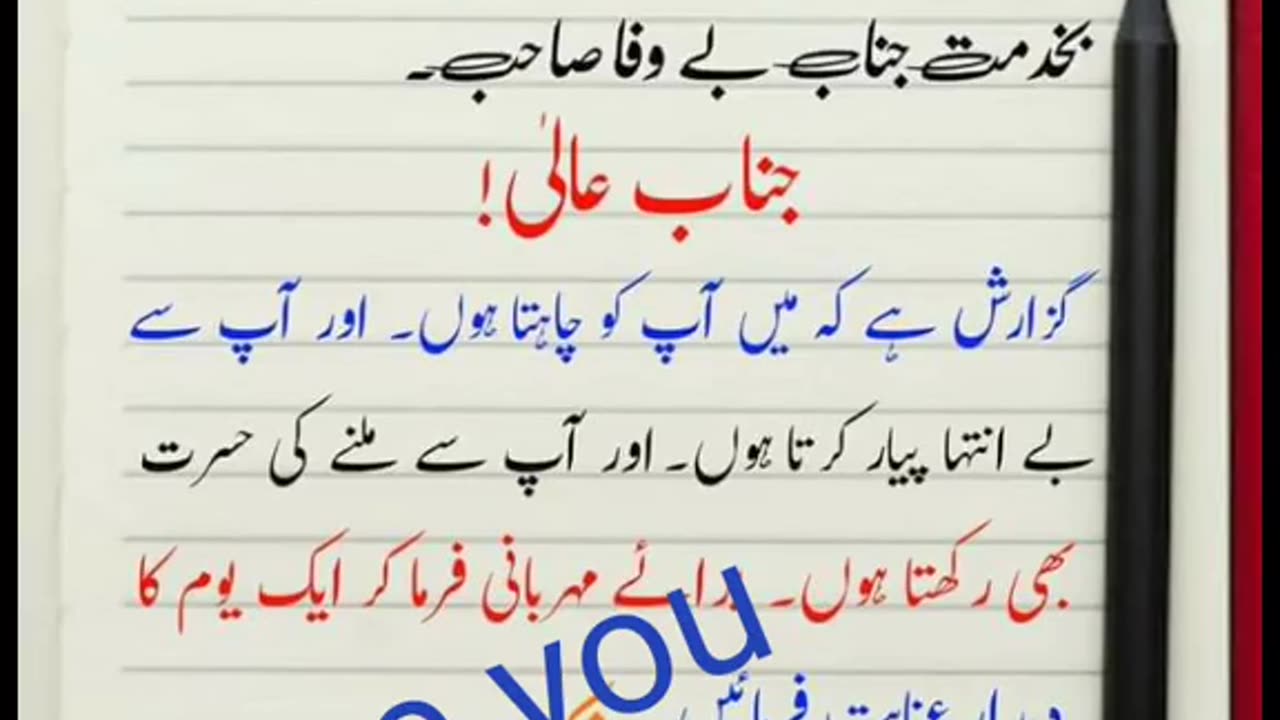 بخدمت جناب بے وفا صاحب۔
جناب عالیٰ!
گزارش ہے کہ میں آپ کو چاہتا ہوں۔ اور آپ سے
بے انتہا پیار کرتا ہوں۔ اور آپ سے ملنے کی حسرت
بھی رکھتا ہوں۔ برائے مہربانی فرما کر ایک یوم کا
دیدار عنایت فرمائیں
you